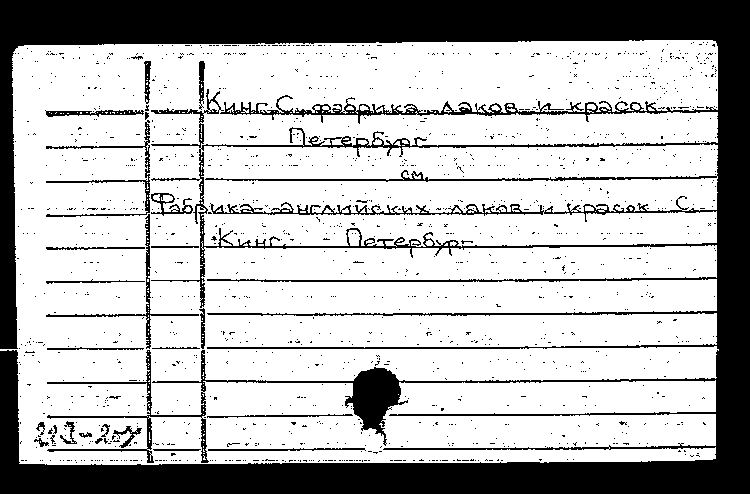 Кинг, С., фабрика лаков и красок
Петербург
см.
Фабрика английских лаков и красок С.
Кинг. Петербург